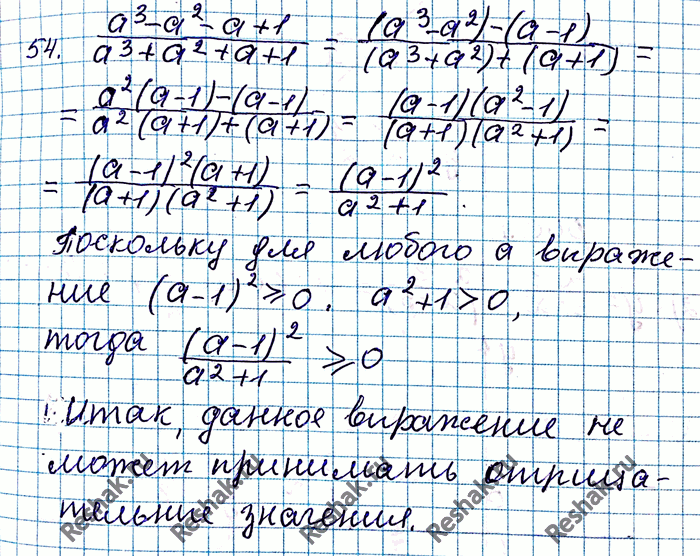 54. (a³-a²-a+1)/(a³+a²+a+1) = ((a³-a²)-(a-1))/((a³+a²)+(a+1)) =
= (a²(a-1)-(a-1))/(a²(a+1)+(a+1)) = ((a-1)(a²-1))/((a+1)(a²+1)) =
= ((a-1)²(a+1))/((a+1)(a²+1)) = (a-1)²/(a²+1).
Поскольку для любого a выраже-
ние (a-1)²≥0. a²+1>0,
тогда (a-1)²/(a²+1) ≥0
Итак, данное выражение не
может принимать отрица-
тельные значения.
Reshak.ru Reshak.ru Reshak.ru Reshak.ru Reshak.ru